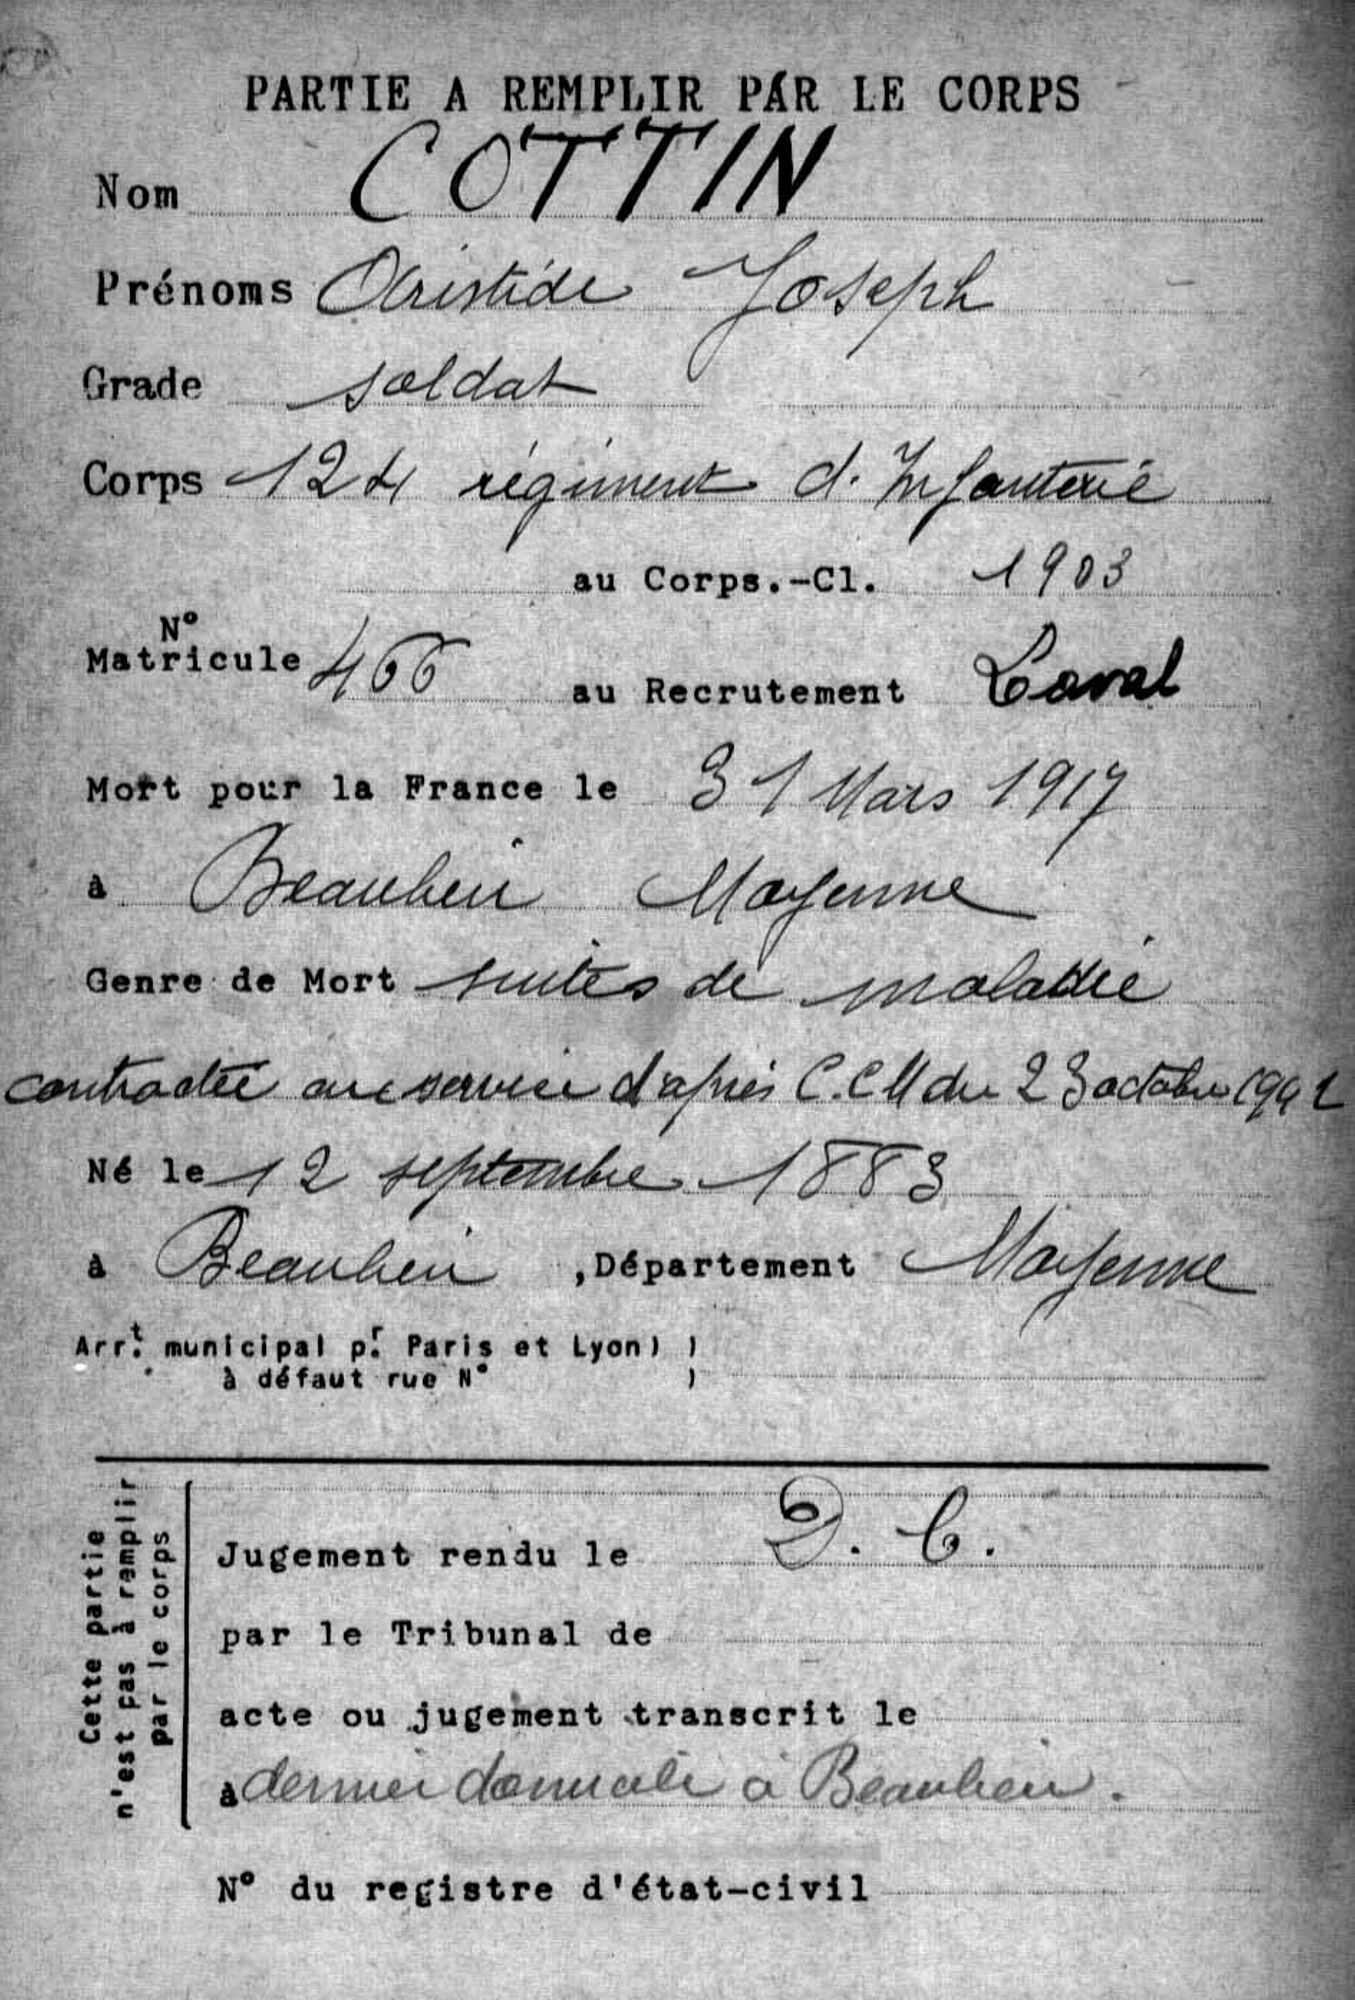 PARTIE A REMPLIR PAR LE CORPS
Nom COTTIN
Prénoms Aristide Joseph
Grade soldat
Corps 124 régiment d. Infanterie
au Corps.-Cl. 1903
N°
Matricule 466
au Recrutement Laval
Mort pour la France le 31 Mars 1917
à Beaulieu Mayenne
Genre de Mort suites de maladie
contractée au service d'après C.C.M du 23 octobre
Né le 12 septembre 1883
à Beaulieu ,Département Mayenne
Arr.t municipal p.r Paris et Lyon) )
à défaut rue N° )
Cette partie
n'est pas à remplir
par le corps
Jugement rendu le D. C.
par le Tribunal de
acte ou jugement transcrit le
à dernier domicile à Beaulieu.
N° du registre d'état-civil